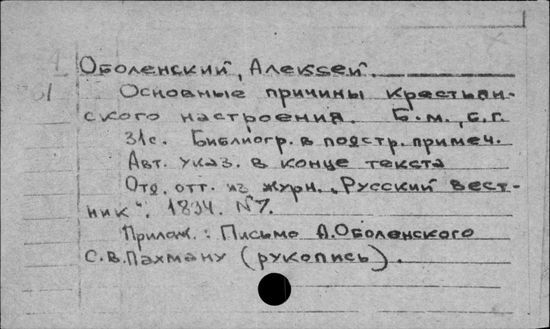 Оболенский, Алексей.
Основные причины крестьян-
ского настроения. Б.м., б.г.
31с. Библиогр. в подстр. примеч.
Авт. указ. в конце текста
Отд. отт. из журн. "Русский вест-
ник". 1894. №7.
Прилож.: Письмо А.Оболенского
С.В.Пахману (рукопись).